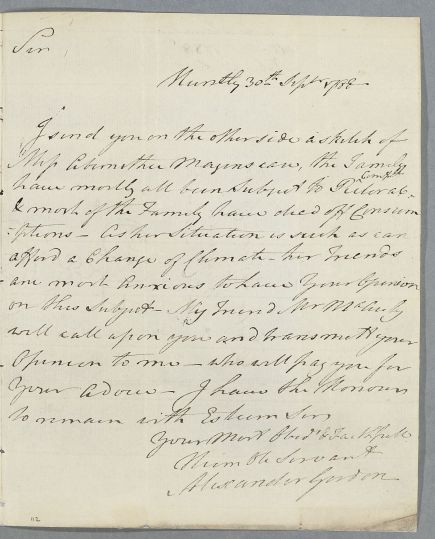 Sir,
Huntly 30th Septr 1786
I send you on the other side a sketch of
Miss Abernethie case, the Family
have mostly all been Subject to Pectoral Complts
& most of the Family have died of Consum
ptions – As her Situation is such as can
afford a Change of Climate – her friends
are most Anxious to have Your Opinion
on this Subject – My friend Mr
will call upon you and transmitt your
Opinion to me – who will pay you for
Your advice – I have the Honour
to remain with Esteem Sir,
Your Most Obedt & Faithfull
Humble Servant
Alexander Gordon
112